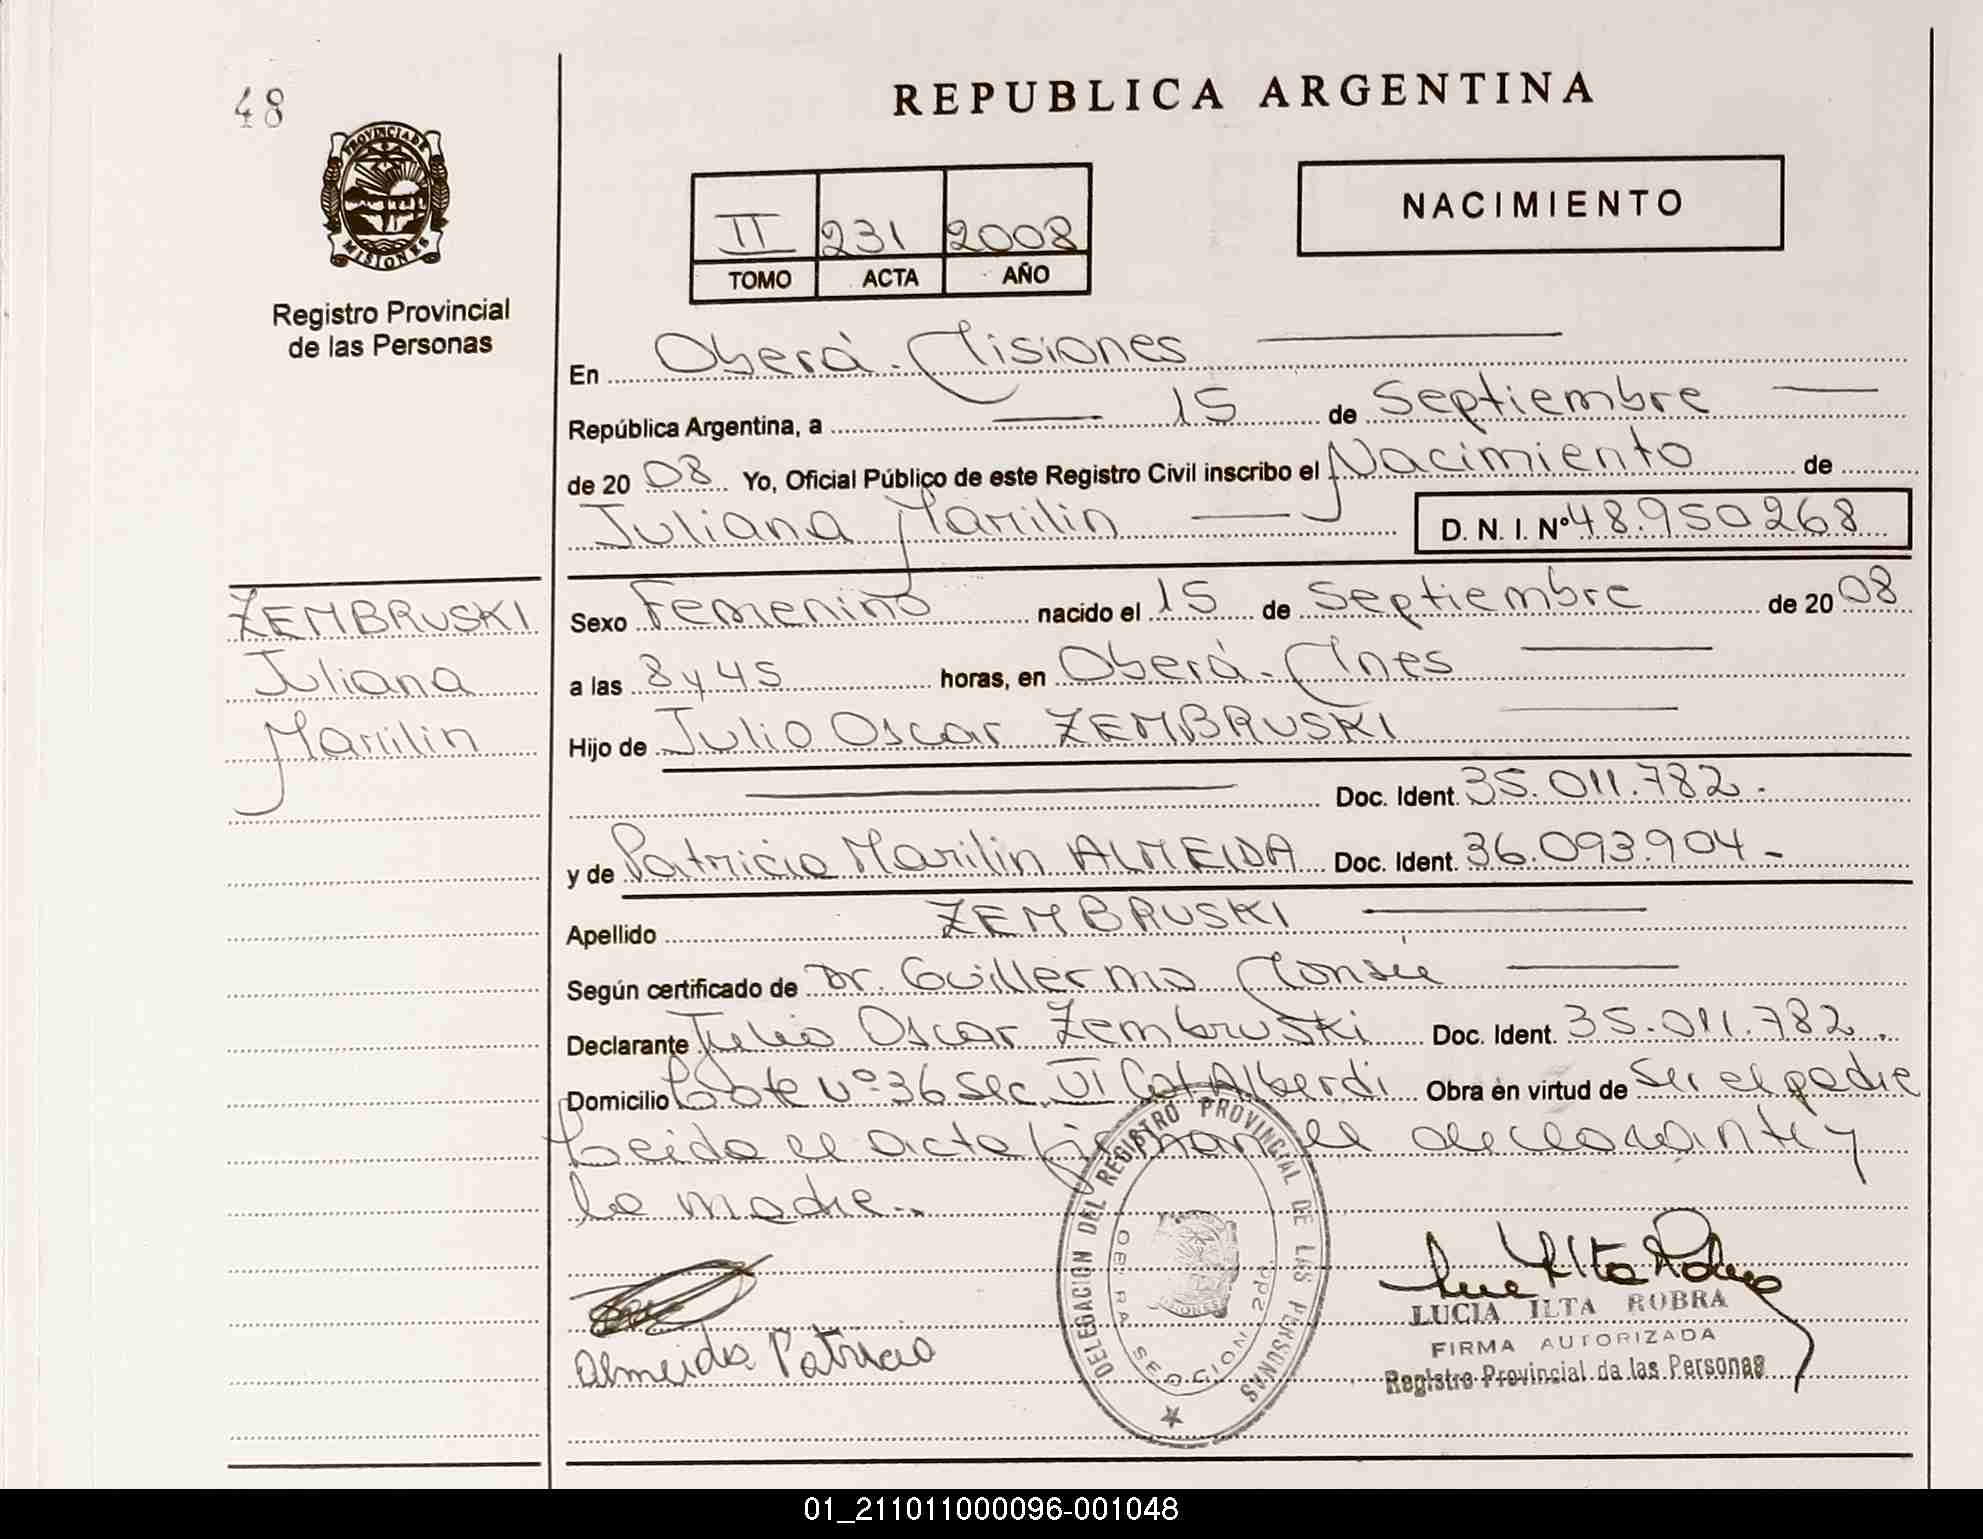 48
REPUBLICA ARGENTINA
PROVINCIA DE
MISIONES
Registro Provincial
de las Personas
II 231 2008
TOMO ACTA AÑO
NACIMIENTO
En Oberá - Misiones
República Argentina, a 15 de Septiembre
de 2008 Yo, Oficial Público de este Registro Civil inscribo el Nacimiento de
Juliana Marilin D. N. I. Nº 48.950.268
ZEMBRUSKI
Juliana
Marilin
Sexo Femenino nacido el 15 de Septiembre de 2008
a las 8 y 45 horas, en Oberá - Mnes
Hijo de Julio Oscar ZEMBRUSKI
Doc. Ident. 35.011.782.
y de Patricia Marilin ALMEIDA Doc. Ident. 36.093.904 -
Apellido ZEMBRUSKI
Según certificado de Dr. Guillermo
Declarante Julio Oscar Zembruski Doc. Ident. 35.011.782.
Domicilio Lote Nº 36 Sec. VI Col Alberdi Obra en virtud de Ser el padre
Leida el acta firman el declarante y
la madre.
DELEGACION DEL REGISTRO PROVINCIAL DE LAS PERSONAS
SECCION 2da.
Almeida Patricia
LUCIA ILTA ROBRA
FIRMA AUTORIZADA
Registro Provincial de las Personas
01_211011000096-001048